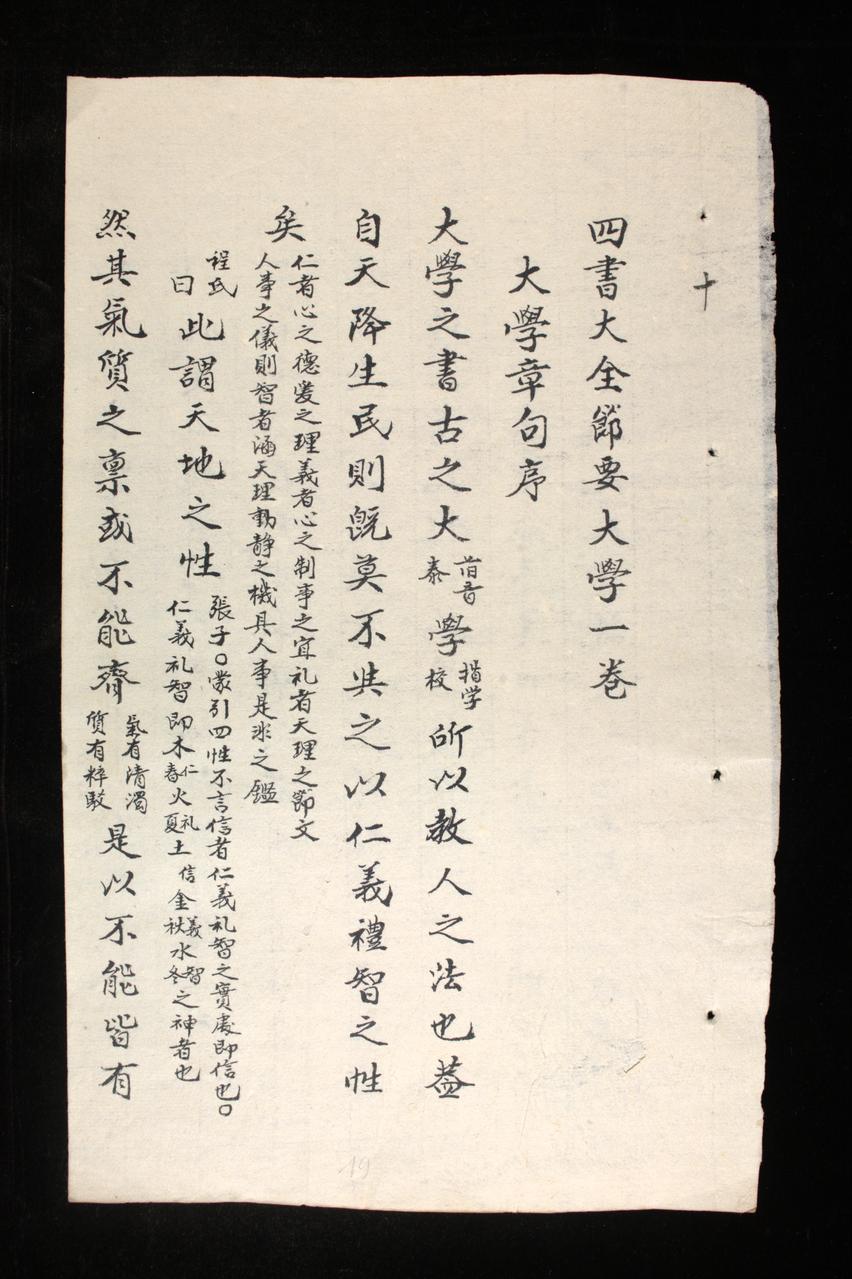 十
四書大全節要大學一卷
大學章句序
大學之書古之大
昔音
泰
學
指学
校
所以教人之法也蓋
自天降生民則旣莫不與之以仁義禮智之性
矣
仁者心之德爱之理義者心之制事之宜礼者天理之節文
人事之儀則智者涵天理動静之機具人事是非之鑑
程氏
曰
此謂天地之性
張子〇蒙引四性不言信者仁義礼智之實處即信也〇
仁義礼智即木仁春火礼夏土信金義秋水智冬之神者也
然其氣質之禀或不能齊
氣有清濁
質有粹駁
是以不能皆有
19